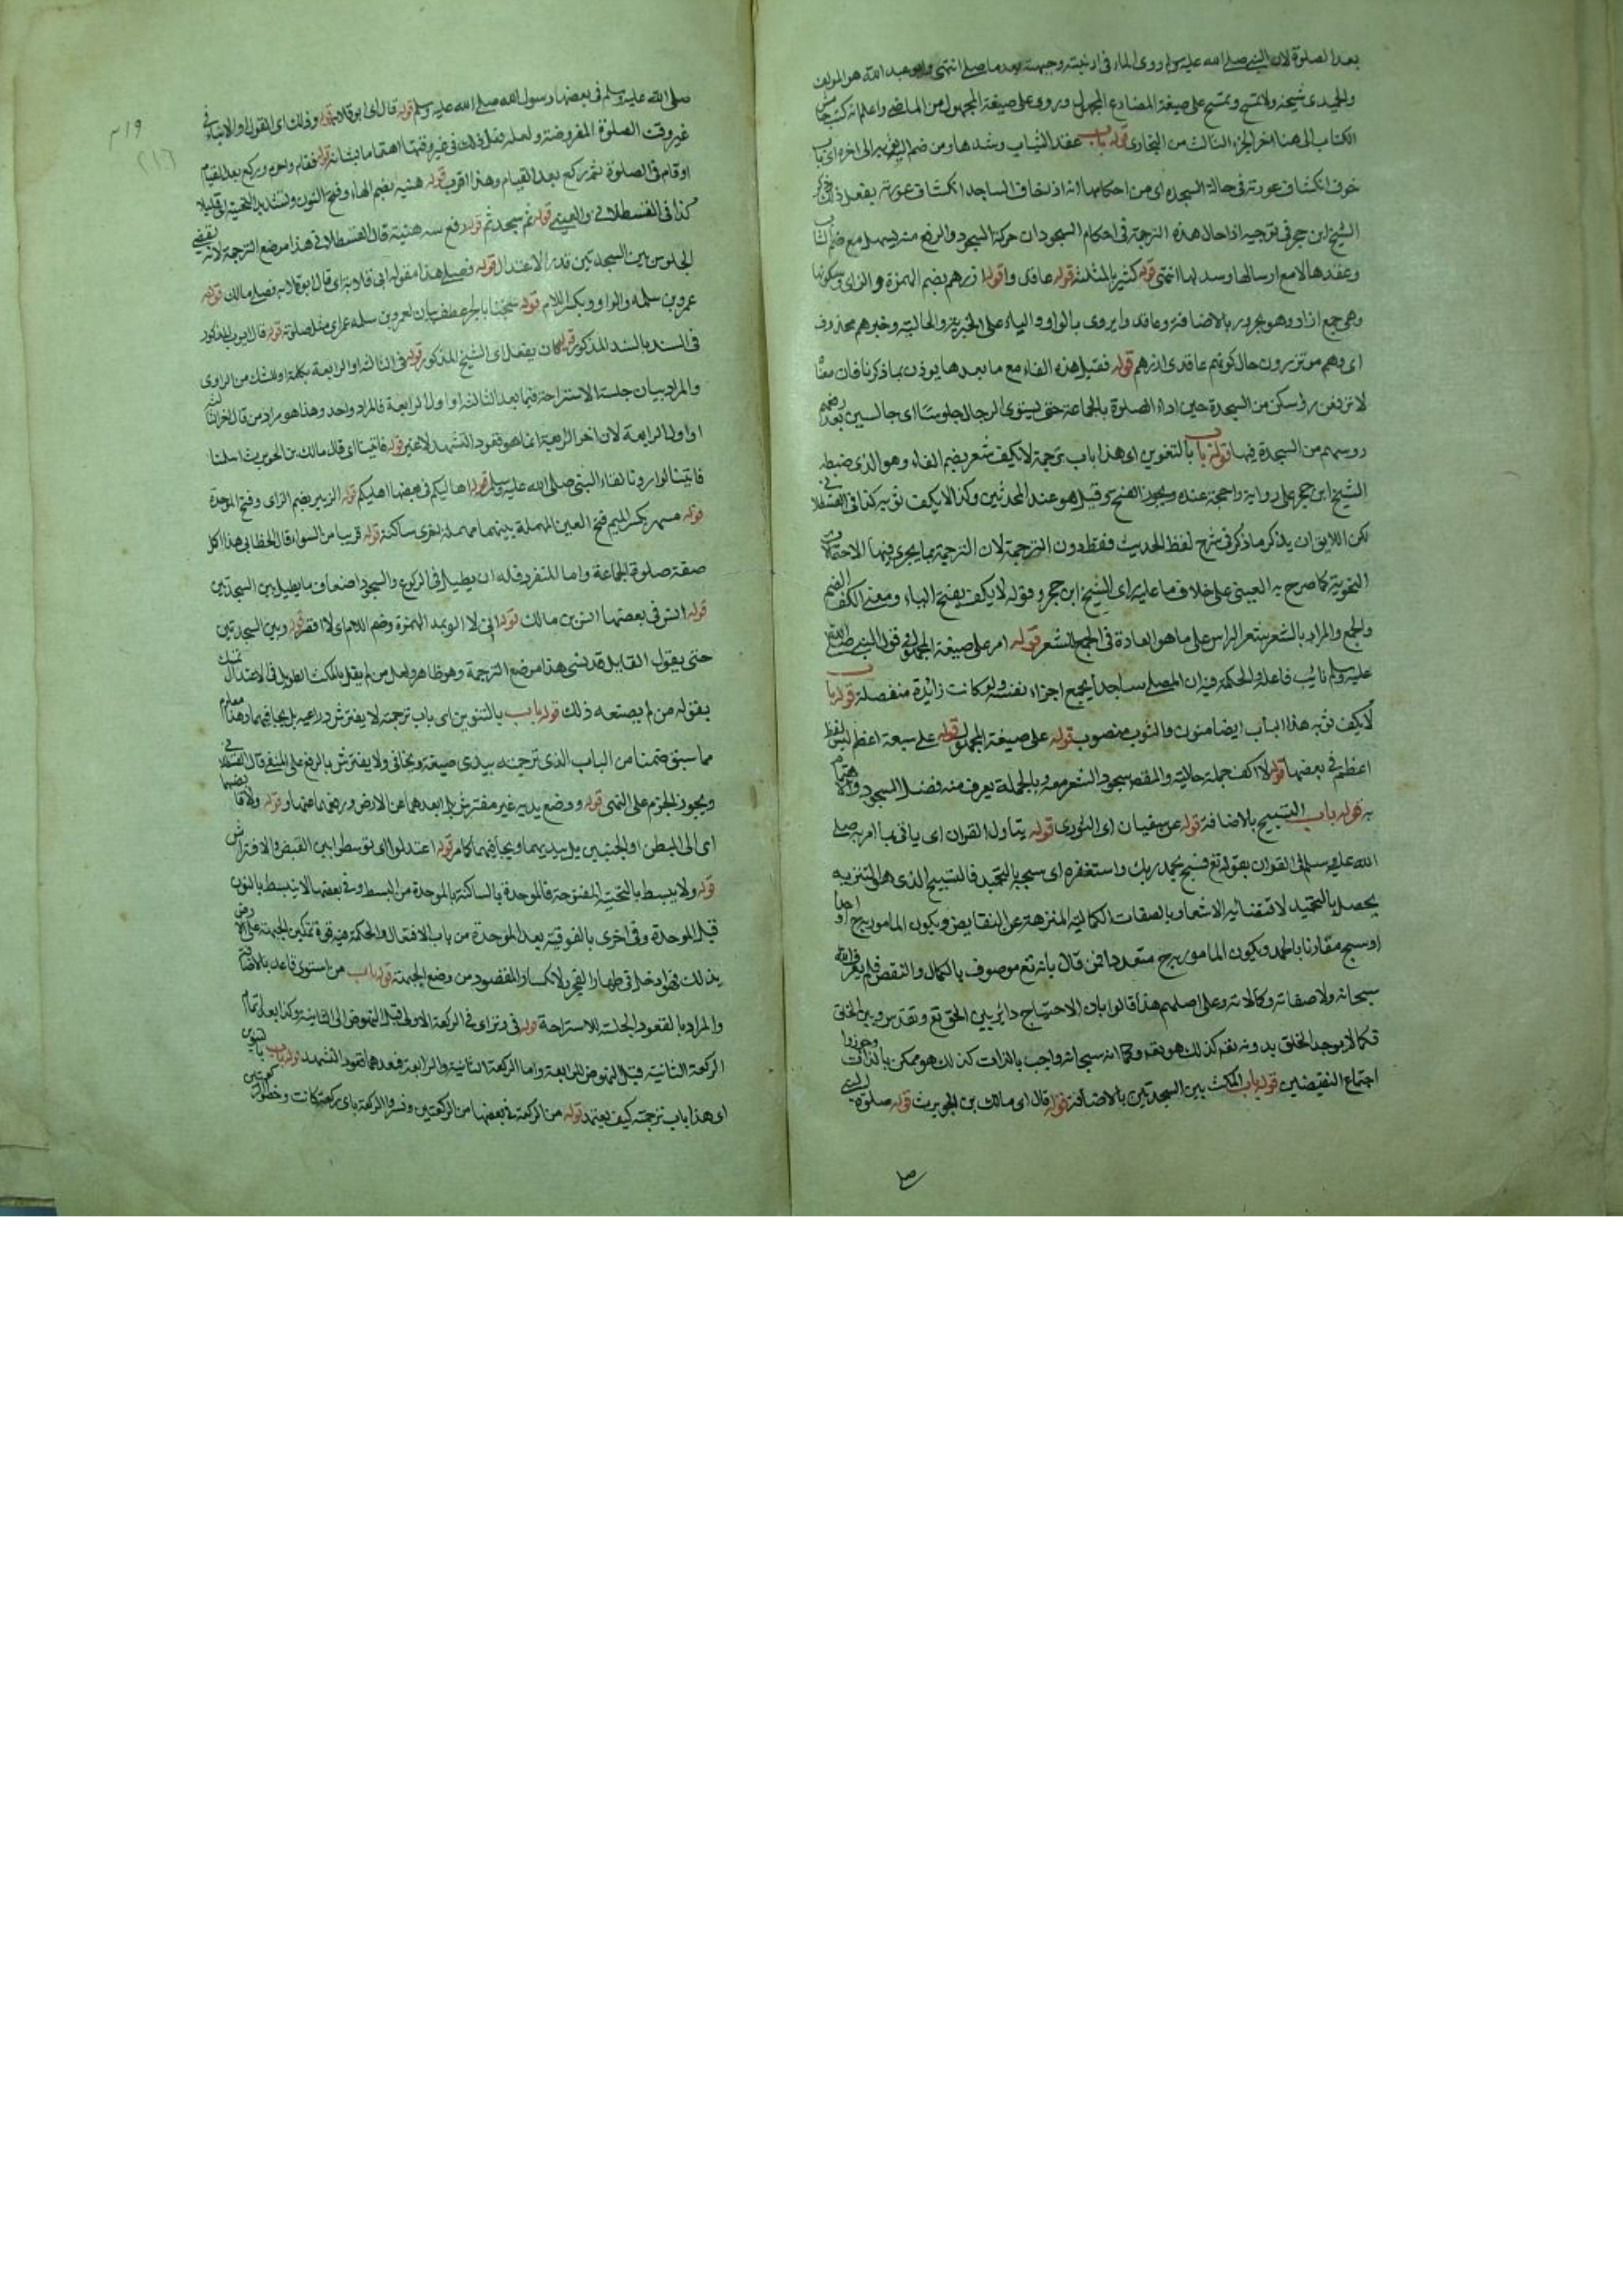 بعد الصلوة لان النبي صلى الله عليه وسلم روى الماء في ارنبته وجبهته بعد ما صلى انتهى وابو عبد الله هو المولف
والحميدى شيخه ولا تمسح وتمسح على صيغة المضارع المجهول وروى على صيغة المجهول من الماضى واعلم انه كتب
الكتاب الى هنا اخر الجزء الثالث من البخارى قوله باب عقد الثياب وشدها ومن ضم اليه ثوبه الى اخره اى
خوف انكشاف عورته في حالة السجده اى من احكامها انه اذا خاف الساجد انكشاف عورته يفعل ذلك
الشيخ ابن حجر في توجيه ادخال هذه الترجمة في احكام السجود ان حركة السجود والرفع منه يسهل مع ضم الثياب
وعقدها لا مع ارسالها وسدلها انتهى قوله كثير بالمثلثة قوله عاقدى وا قوله ازرهم بضم الهمزة والزاى وسكونها
وهى جمع ازار وهو مجرور بالاضافة وعاقدوا يروى بالواو والياء على الخبرية والحالية وخبرهم محذوف
اى وهم موتزرون حال كونهم عاقدى ازرهم قوله فقيل هذه الفاء مع ما بعدها يوذن بما ذكرنا فان معناه
لا ترفعن رؤسكن من السجدة حين اداء الصلوة بالجماعة حتى يستوى الرجال جلوسا اى جالسين بعد رفعهم
روسهم من السجدة فيها قوله باب بالتنوين اى هذا باب ترجمة لا يكف شعر بضم الفاء وهو الذى ضبطه
الشيخ ابن حجر على رواية واحجة عنده ويجوز الفتح وقيل هو عند المحدثين وكذا لا يكف ثوبه كذا في القسطلاني
لكن اللايق ان يذكر ما ذكر في شرح لفظ الحديث فقط دون الترجمة لان الترجمة بما يجرى فيها الاحتمالات
النحوية كما صرح به العينى على خلاف ما عليه راى الشيخ ابن حجر وقوله لا يكف بفتح الياء ومعنى الكف الضم
والجمع والمراد بالشعر شعر الراس على ما هو العادة في الجمع للشعر قوله امر على صيغة المجهول في قول النبي صلى الله
عليه وسلم نائب فاعله والحكمة فيه ان المصلى ساجدا يجمع اجزاء نفسه ولو كانت زائدة منفصلة قوله باب
لا يكف ثوبه هذا الباب ايضا منون والثوب منصوب قوله على صيغة المجهول قوله على سبعة اعظم ليس لفظ
اعظم في بعضها قوله لا اكف جملة حالية والمقصد سجود الشعر معه وبالجملة يعرف منه فضل السجود والاهتمام
به قوله باب التسبيح بالاضافة قوله عن سفيان اى الثورى قوله يتاول القران اى ياتى بما امر به صلى
الله عليه وسلم في القران بقوله تع فسبح بحمد ربك واستغفره اى سبحه بالتحميد فالتسبيح الذى هو التنزيه
يحصل بالتحميد لاقتضائه الاشعار بالصفات الكمالية المنزهة عن النقايض ويكون المامور به ح احدا
او سبح مقارنا بالحمد ويكون المامور به ح متعددا فمن قال بانه تع موصوف بالكمال والنقص فلم يعرف الله
سبحانه ولا صفاته وكمالاته وعلى اصلهم هذا قالوا بان الاحتياج دائر بين الحق تع وتقدس وبين الخلق
فكما لا يوجد الخلق بدونه تقد كذلك هو تقد وكما انه سبحانه واجب بالذات كذلك هو ممكن بالذات وجوزوا
اجتماع النقيضين قوله باب المكث بين السجدتين بالاضافة قوله قال اى مالك بن الحويرث قوله صلوة النبي
صلى
٢١٩
٢١٦
صلى الله عليه وسلم في بعضها رسول الله صلى الله عليه وسلم قوله قال اى ابو قلابة قوله وذلك اى القول او الانباء في
غير وقت الصلوة المفروضة ولعله فعل ذلك في غير وقتها اهتماما بشانه قوله فقام واحرم وركع بعد القيام
او قام في الصلوة ثم ركع بعد القيام وهذا اقرب قوله هنية بضم الهاء وفتح النون وتشديد التحتية اى قليلا
كذا في القسطلاني والعينى قوله ثم سجد ثم قوله رفع راسه هنية قال القسطلاني هذا موضع الترجمة لانه يقتضى
الجلوس بين السجدتين قدر الاعتدال قوله فصلى هذا مقول ابى قلابة اى قال ابو قلابة فصلى مالك قوله
عمرو بن سلمه والواو وبكسر اللام قوله شيخنا بالجر عطف بيان لعمرو بن سلمه اى مثل صلوته قوله قال ايوب المذكور
في السند بالسند المذكور قوله كان يفعل اى الشيخ المذكور قوله في الثالثة او الرابعة بكلمة او للشك من الراوى
والمراد بيان جلسة الاستراحة فيما بعد الثالثة او اول الرابعة فالمراد واحد وهذا هو مراد من قال اخر الثالثة
او اول الرابعة لان اخر الرابعة انما هو قعود التشهد لا غير قوله فاتينا اى قال مالك بن الحويرث اسلمنا
فاتينا او اردنا لقاء النبي صلى الله عليه وسلم قوله اهاليكم في بعضها اهليكم قوله الزبير بضم الزاى وفتح الموحدة
قوله مسعر بكسر الميم فتح العين المهملة بينهما مهملة اخرى ساكنة قوله قريبا من السواء قال الخطابى هذا اكل
صفة صلوة الجماعة واما المنفرد فله ان يطيل في الركوع والسجود اضعاف ما يطيل بين السجدتين
قوله انس في بعضها انس بن مالك قوله انى لا الو بمد الهمزة وضم اللام اى لا اقصر قوله وبين السجدتين
حتى يقول القايل قد نسى هذا موضع الترجمة وهو ظاهر ولعل من لم يقل بالمكث الطويل في الاعتدال تمسك
بقوله من لم يصنعه ذلك قوله باب بالتنوين اى باب ترجمته لا يفترش ذراعيه بل يجافيهما وهذا معلوم
مما سبق ضمنا من الباب الذى ترجمته يبدى ضبعيه ويجافي ولا يفترش بالرفع على النفى قال القسطلاني
ويجوز الجزم على النهى قوله ووضع يديه غير مفترش بل ابعدهما عن الارض ورفعهما عنها و قوله ولا قابضهما
اى الى البطن او الجنبين بل يبديهما ويجافيهما كما مر قوله اعتدلوا اى توسطوا بين القبض والافتراش
قوله ولا يبسط بالتحتية المفتوحة فالموحدة بالساكنة بالموحدة من البسط وفي بعضها لا ينبسط بالنون
قبل الموحدة وفي اخرى بالفوقية بعد الموحدة من باب الافتعال والحكمة فيه قوة تمكين الجبهة على الارض
بذلك فهو ادخل في اظهار الفقر والانكسار والمقصود من وضع الجبهة قوله باب من استوى قاعدا بالاضافة
والمراد بالقعود الجلسة للاستراحة قوله في وتر اى في الركعة الاولى قبل النهوض الى الثانية وكذا بعد اتمام
الركعة الثانية قبل النهوض للرابعة واما الركعة الثانية والرابعة فبعدهما قعود التشهد قوله باب بالتنوين
اى هذا باب ترجمته كيف يعتمد قوله من الركعة في بعضها من الركعتين وفسروا الركعة باى ركعة كانت